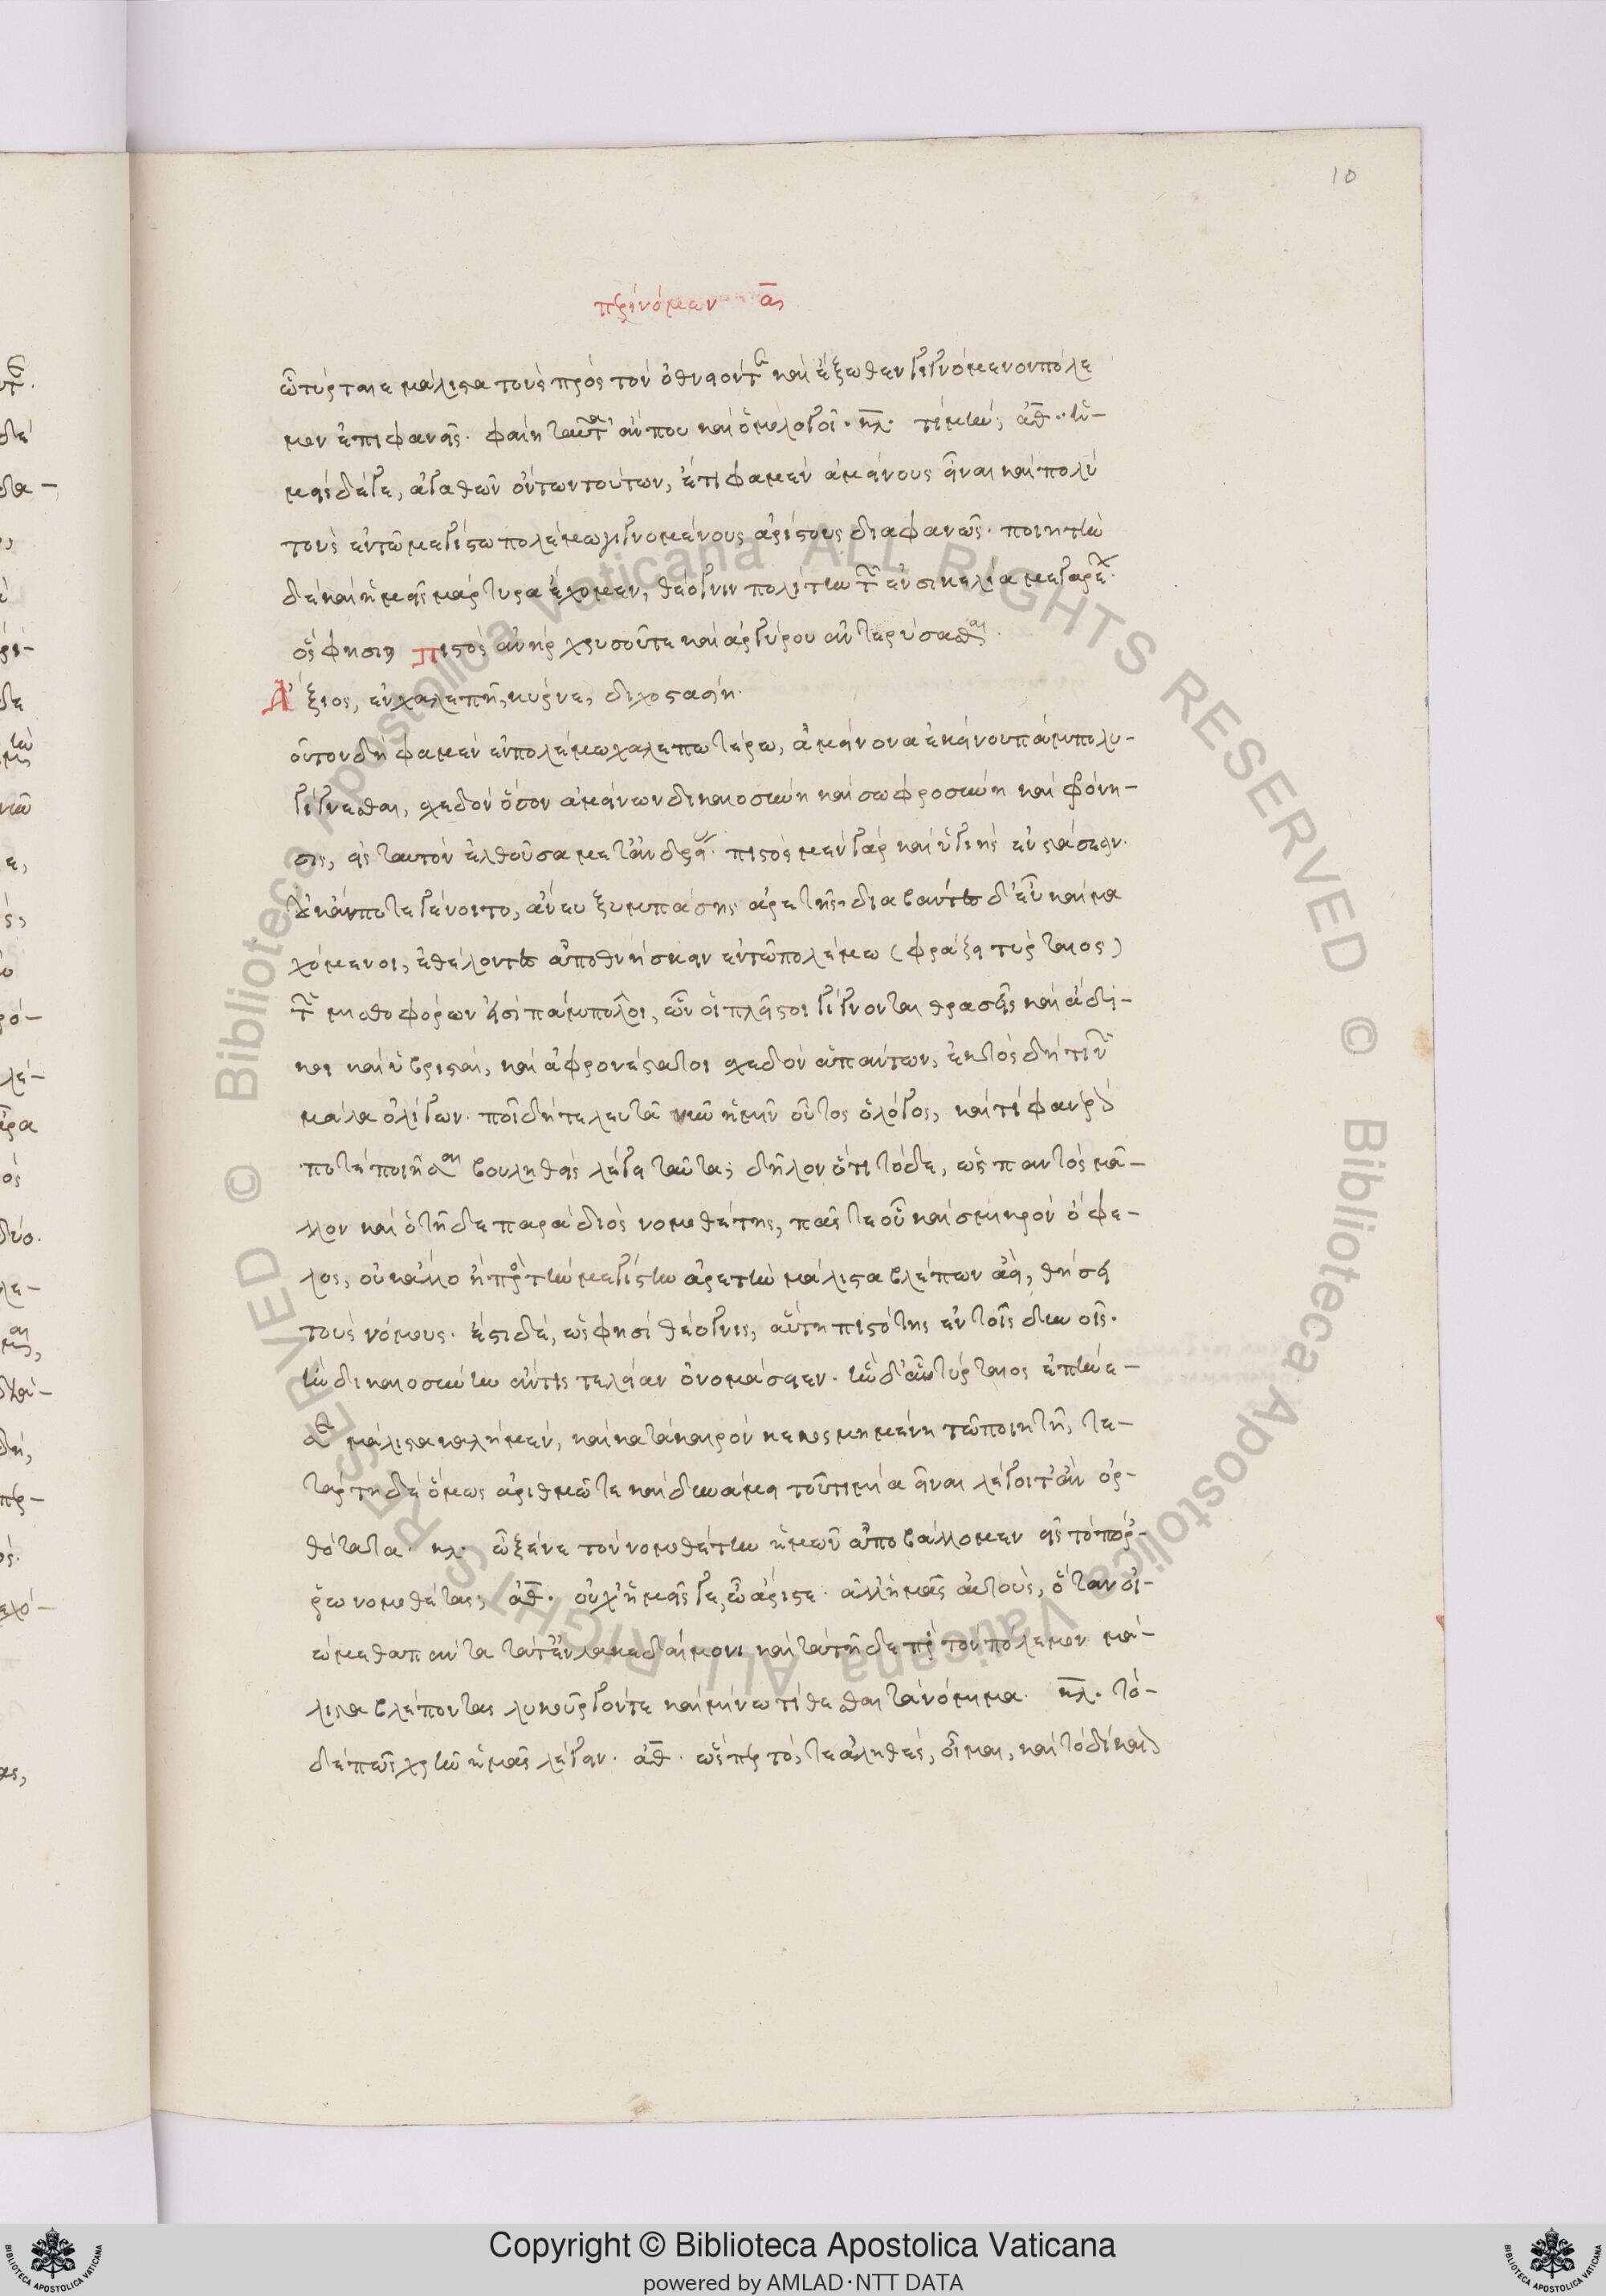 10
περὶ νόμων α
ὦ τύρταιε μάλιστα τοὺς πρὸς τὸν ὀθνεῖόν τε καὶ ἔξωθεν γιγνόμενον πόλε
μον ἐπιφανεῖς. φαίη ταῦτ' ἄν που καὶ ὁμολογοῖ. κλ. τί μήν; ἀθ. ἡ-
μεῖς δέ γε, ἀγαθῶν ὄντων τούτων, ἔτι φαμὲν ἀμείνους εἶναι καὶ πολὺ
τοὺς ἐν τῶ μεγίστω πολέμω γιγνομένους ἀρίστους διαφανῶς. ποιητὴν
δὲ καὶ ἡμεῖς μάρτυρα ἔχομεν, θέογνιν πολίτην τῶν ἐν σικελία μεγαρέων.
ὅς φησιν πιστὸς ἀνὴρ χρυσοῦ τε καὶ ἀργύρου ἀντερύσασθαι.
Ἄξιος, ἐν χαλεπῆ, κύρνε, διχοστασίη.
τοῦτον δή φαμεν ἐν πολέμω χαλεπωτέρω, ἀμείνονα ἐκείνου πάμπολυ-
γίγνεσθαι, σχεδὸν ὅσον ἀμείνων δικαιοσύνη καὶ σωφροσύνη καὶ φρόνη-
σις, εἰς ταυτὸν ἐλθοῦσα μετ' ἀνδρείας. πιστὸς μὲν γὰρ καὶ ὑγιὴς ἐν στάσεσιν.
οὐκ ἄν ποτε γένοιτο, ἄνευ ξυμπάσης ἀρετῆς. διαβάντες δ' εὖ καὶ μα
χόμενοι, ἐθέλοντες ἀποθνήσκειν ἐν τῶ πολέμω (φράζει τύρταιος)
τῶν μισθοφόρων εἰσὶ πάμπολλοι, ὧν οἱ πλεῖστοι γίγνονται θρασεῖς καὶ ἄδι-
κοι καὶ ὑβρισταὶ, καὶ ἀφρονέστατοι σχεδὸν ἁπάντων, ἐκτὸς δή τινων
μάλα ὀλίγων. ποῖ δὴ τελευτᾶ νῦν ἡμῖν οὗτος ὁ λόγος, καὶ τί φανερόν
ποτὲ ποιῆσαι βουληθεὶς λέγει ταῦτα; δῆλον ὅτι τόδε, ὡς παντὸς μᾶ-
λλον καὶ ὁ τῆδε παρὰ διὸς νομοθέτης, πᾶς τε οὗ καὶ σμικρὸν ὄφε-
λος, οὐκ ἄλλο ἢ πρὸς τὴν μεγίστην ἀρετὴν μάλιστα βλέπων ἀεὶ, θήσει
τοὺς νόμους. ἔστι δὲ, ὥς φησι θέογνις, αὕτη πιστότης ἐν τοῖς δεινοῖς.
ἣν δικαιοσύνην ἄν τις τελείαν ὀνομάσειεν. ἣν δ' αὖ τύρταιος ἐπήνε-
σεν μάλιστα καλὴ μὲν, καὶ κατὰ καιρὸν κεκοσμημένη τῶ ποιητῆ, τε-
τάρτη δὲ ὅμως ἀριθμῶ τε καὶ δυνάμει τοῦ τιμία εἶναι λέγοιτ' ἂν ὀρ-
θότατα. κλ. ὦ ξένε τὸν νομοθέτην ἡμῶν ἀποβάλλομεν εἰς τοὺς πόρ-
ρω νομοθέτας; ἀθ. οὐχ ἡμεῖς γε, ὦ ἄριστε. ἀλλ' ἡμᾶς αὐτοὺς, ὅταν οἰ-
ώμεθα πάντα τά τ' ἐν λακεδαίμονι καὶ τὰ τῆδε πρὸς τὸν πόλεμον μά-
λιστα βλέποντας λυκοῦργόν τε καὶ μίνω τίθεσθαι τὰ νόμιμα. κλ. τὸ-
δὲ πῶς χρῆν ἡμᾶς λέγειν. ἀθ. ὥσπερ τό, τε ἀληθὲς, οἶμαι, καὶ τὸ δίκαιον
Copyright © Biblioteca Apostolica Vaticana
powered by AMLAD·NTT DATA